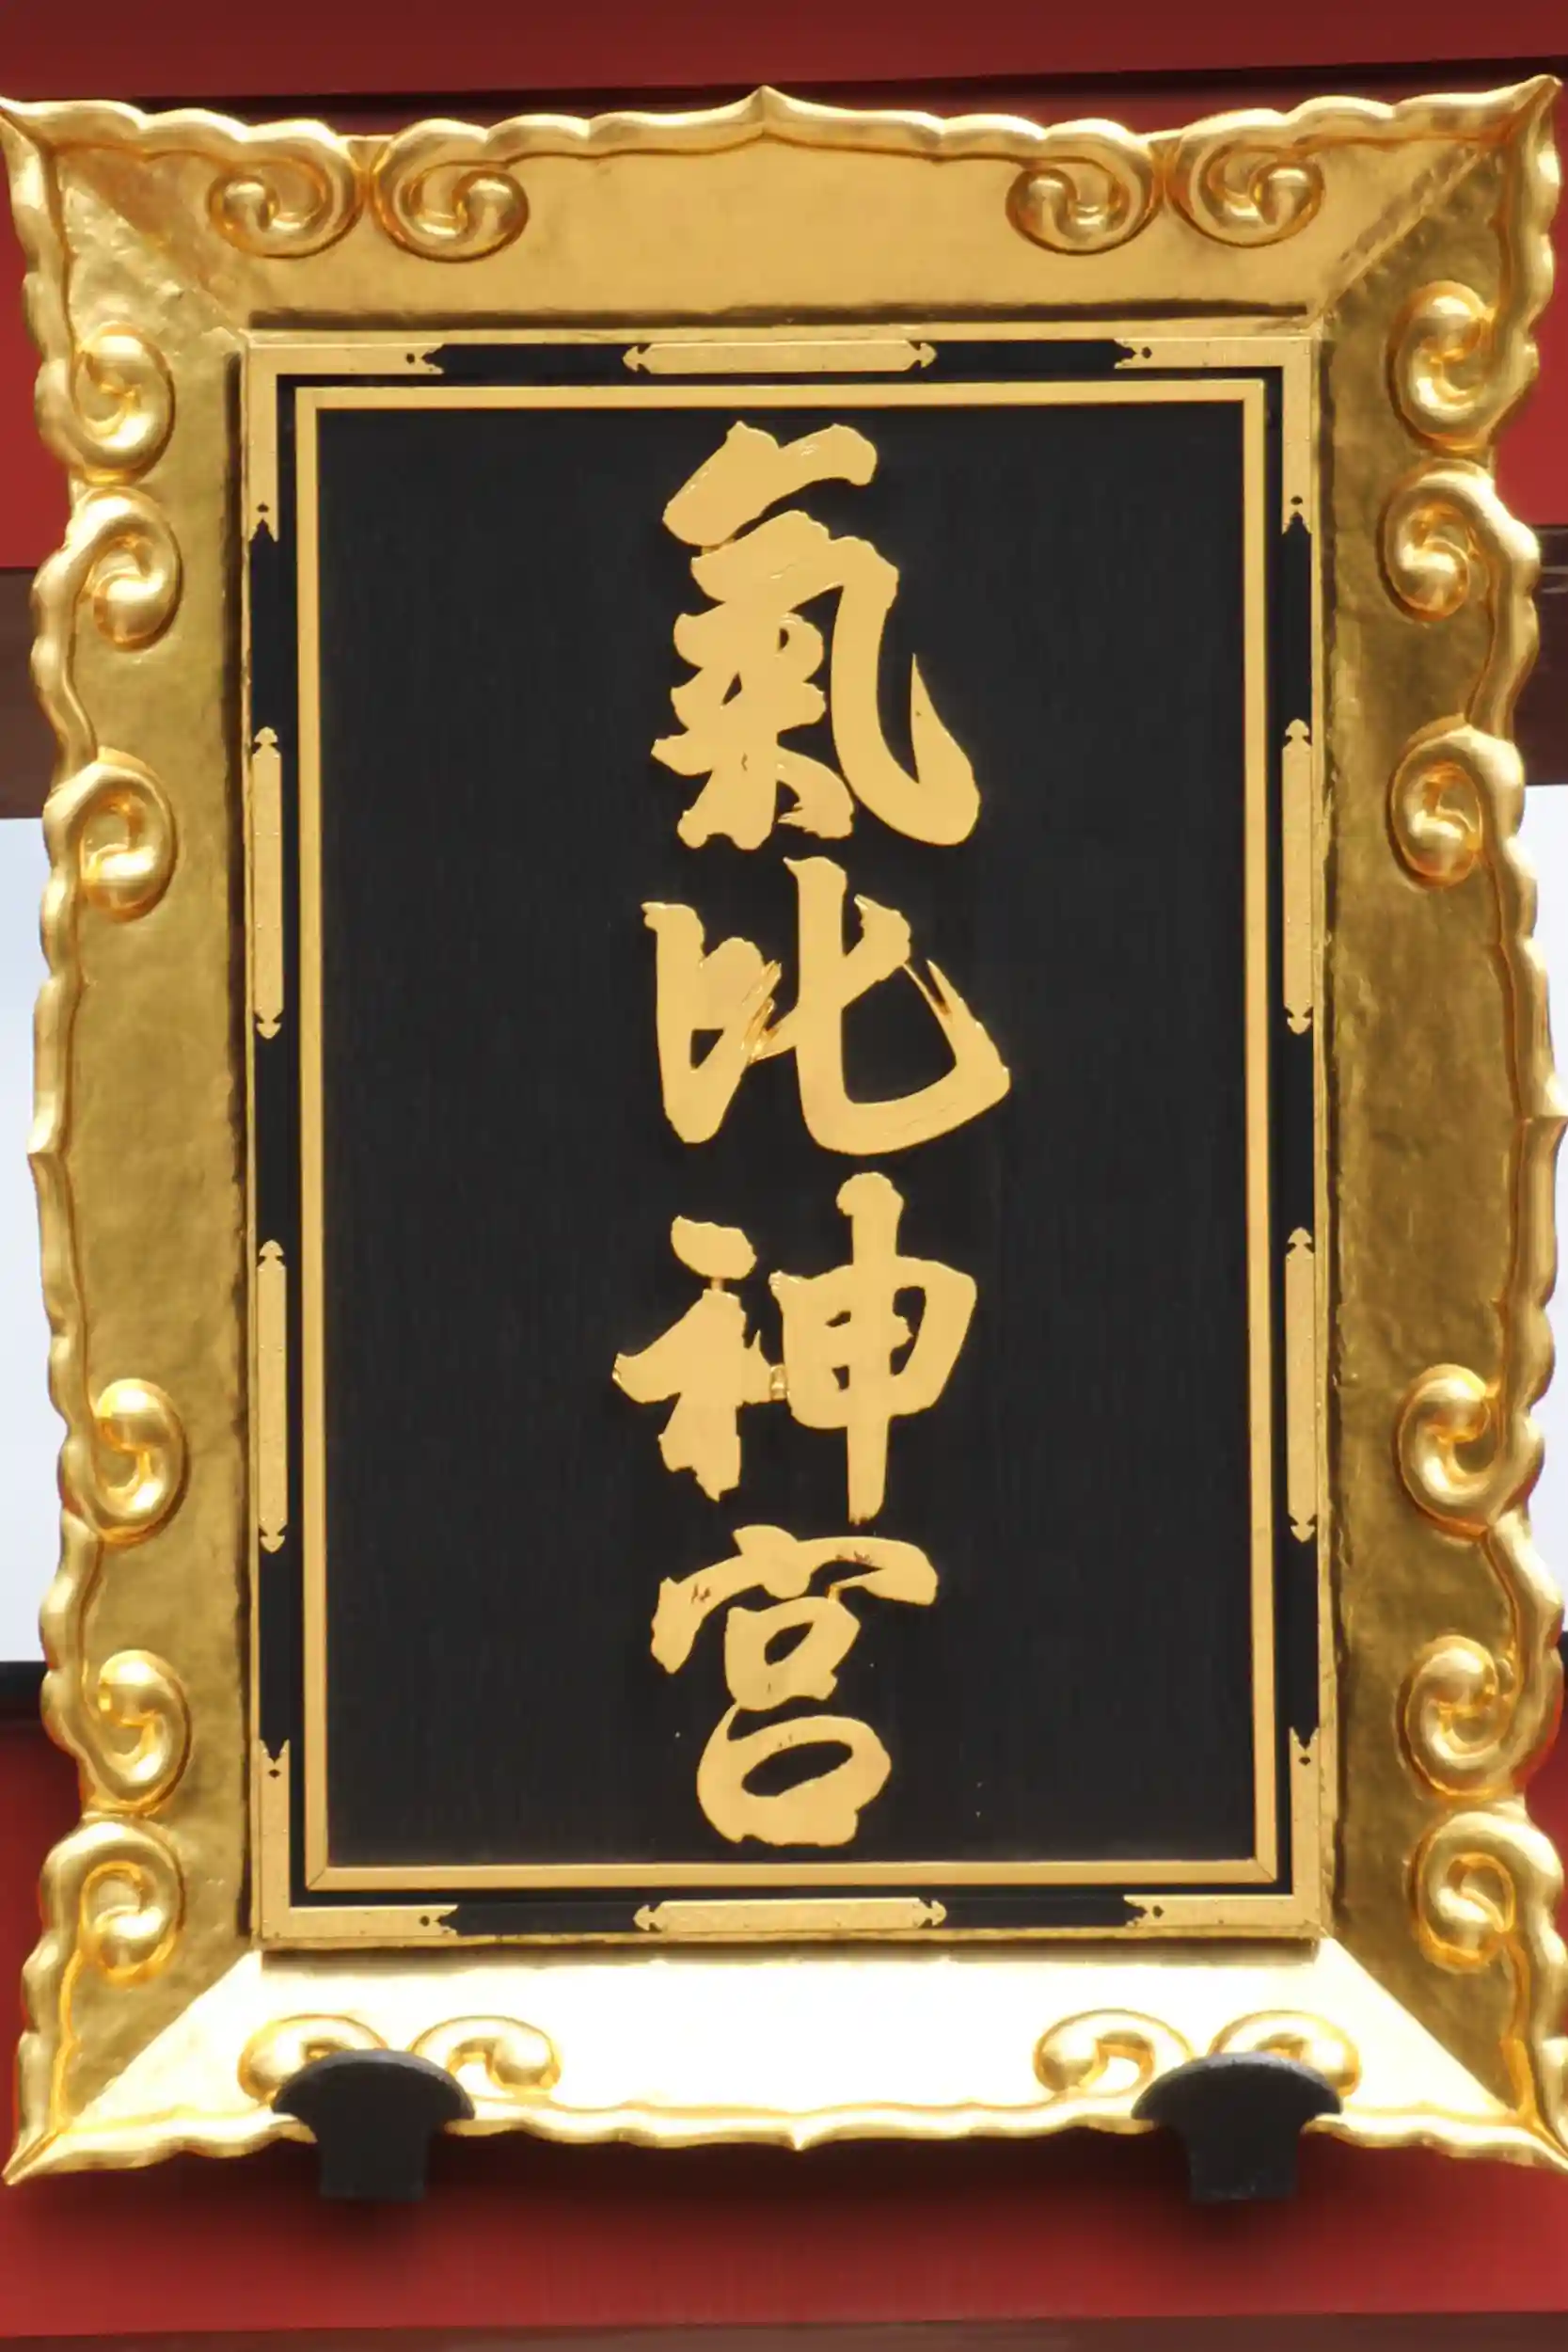 氣比神宮